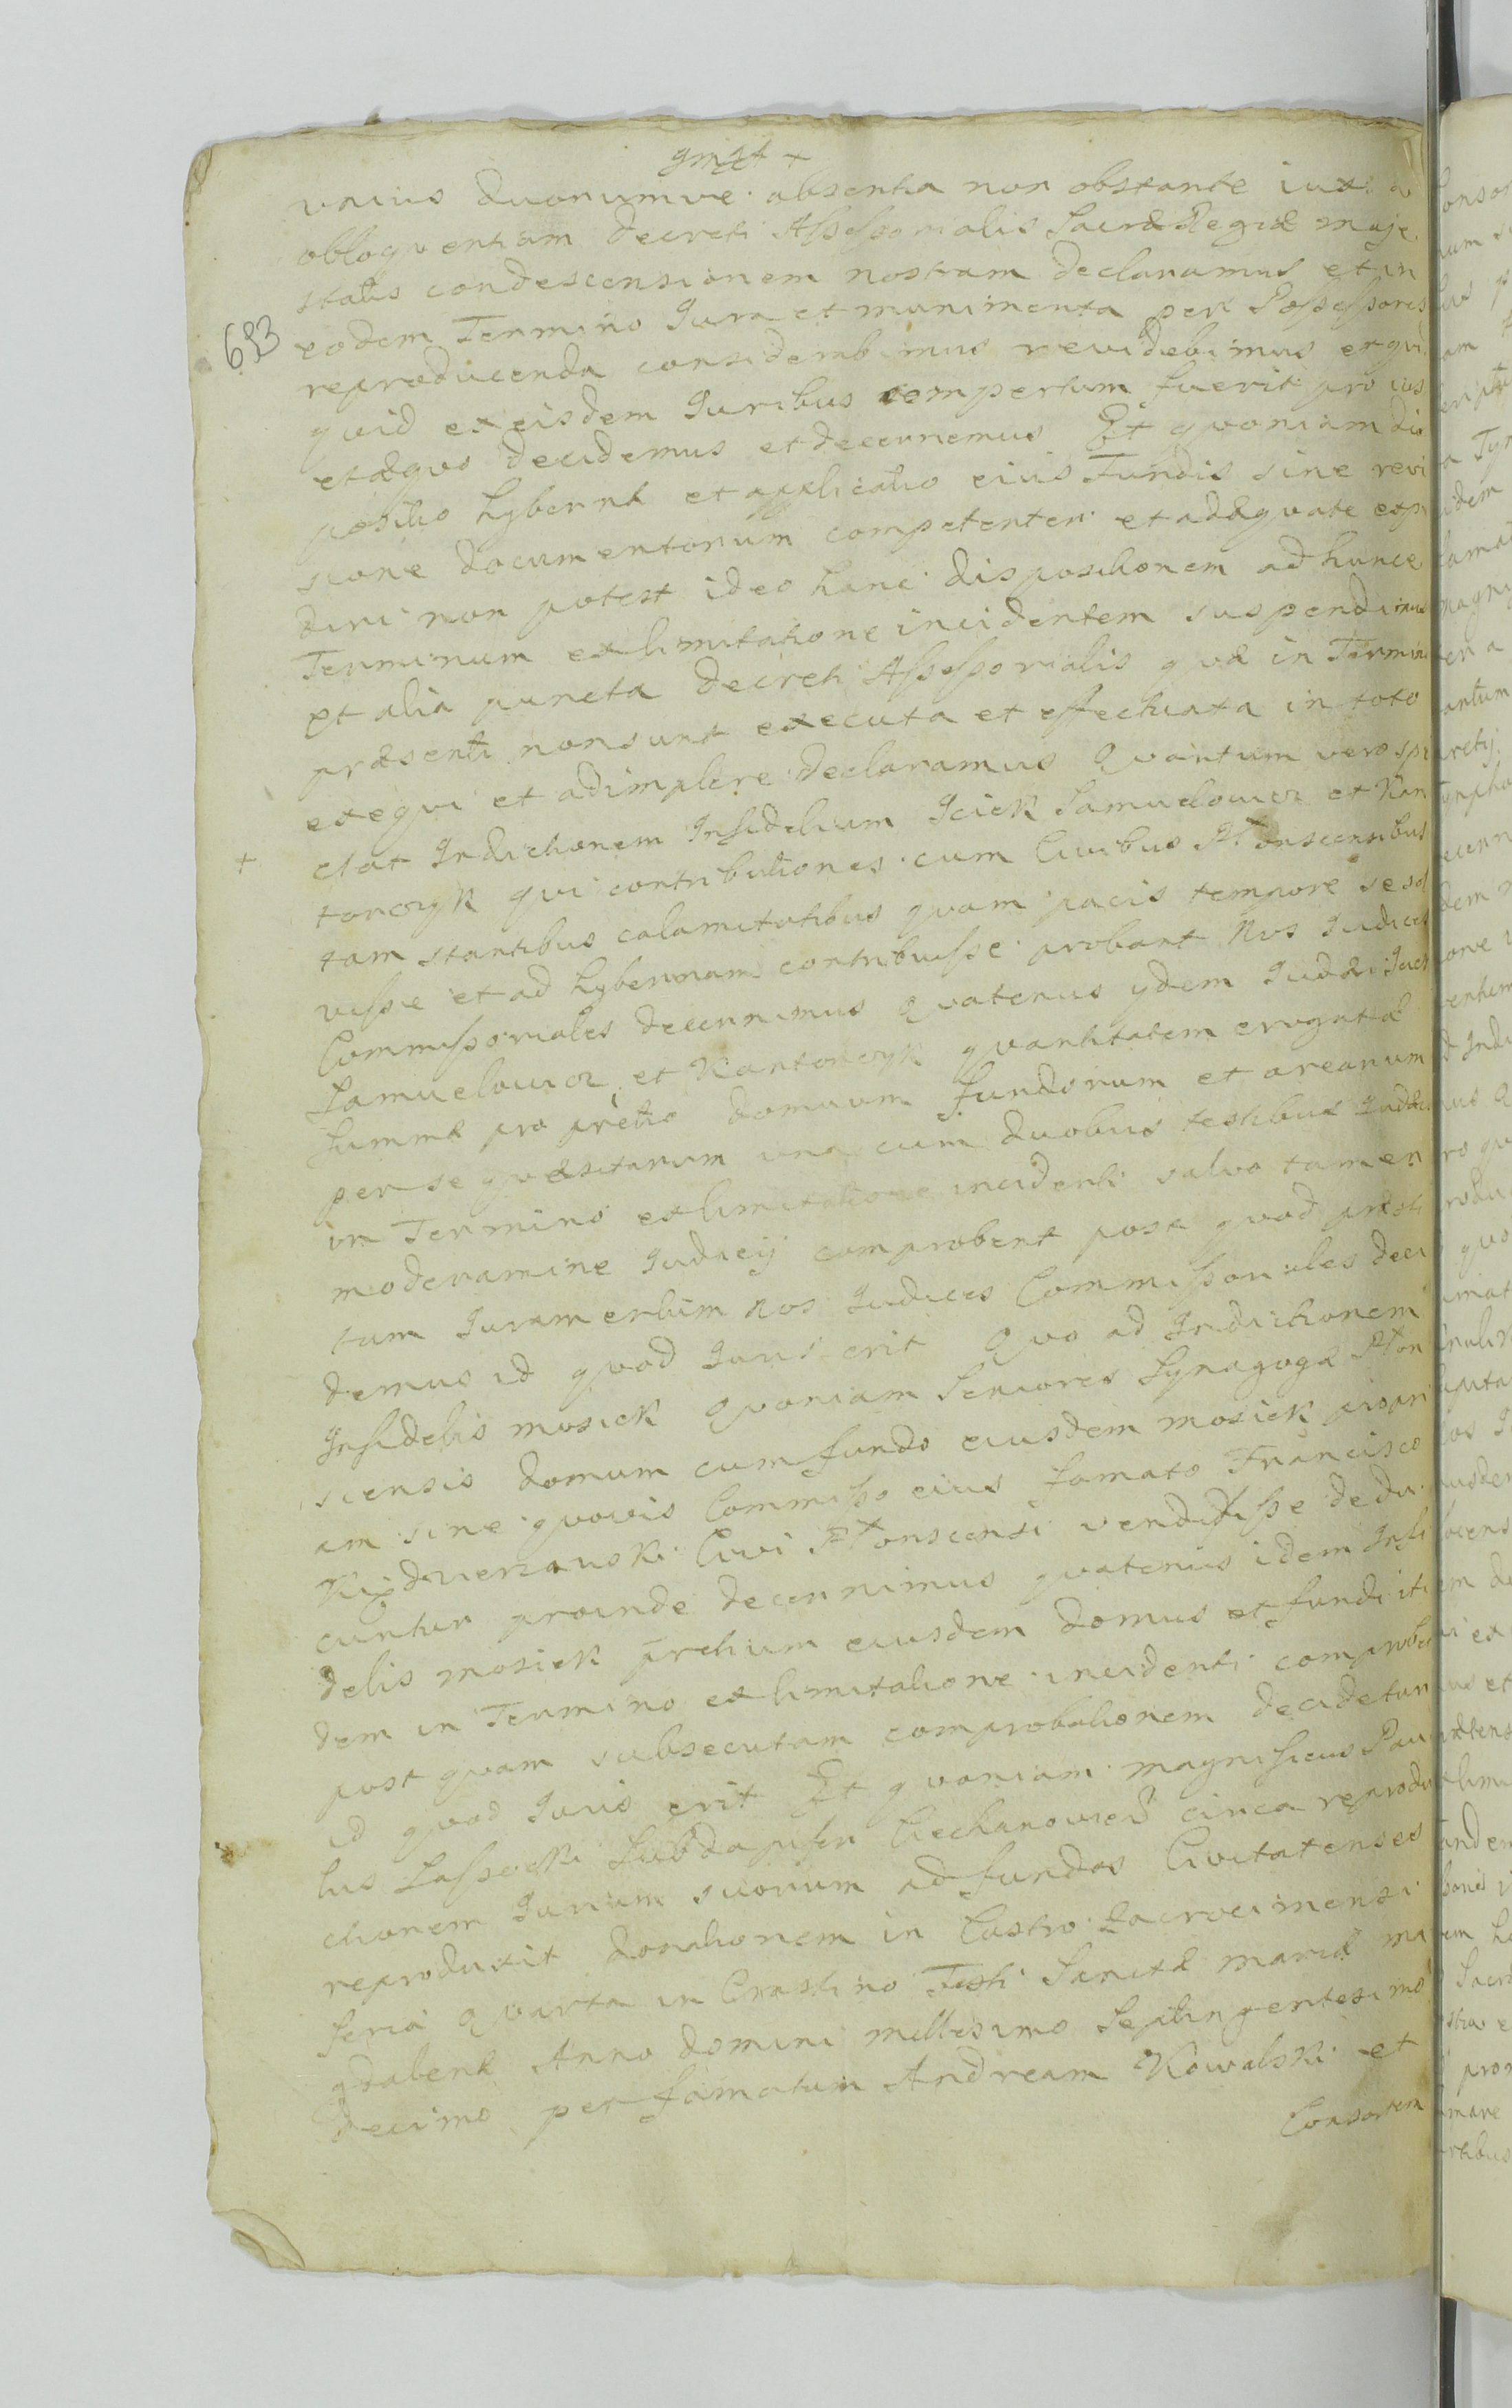 unius duorumve absentia non obstante iuxta
obloquentiam decreti Assessorialis Sacræ Regiæ maje
statis condescensionem nostram declaramus et in
683
eodem Termino Jura et munimenta per Possessores
reproducenda considerabimus revidebimus et qui
quid ex eisdem Juribus compertum fuerit pro ius
et æquo decidemus et decernemus Et quoniam dis
positio hybernæ et applicatio eius Fundis sine revi
sione documentorum competenter et adæquate exp
diri non potest ideo hanc dispositionem ad hunce
Terminum ex limitatione incidentem suspendimus
et alia puncta decreti Assessorialis quæ in Termino
præsenti non sunt executa et effectuata in toto
exequi et adimplere declaramus Quantum vero spe
+ ctat Indictionem Infidelium Icick Samuelowicz et Kan
torczyk qui contributiones cum Civibus Płonscensibus
tam stantibus calamitatibus quam pacis tempore se sol
visse et ad hybernam contribuisse probant Nos Judices
Commissoriales decernimus Quatenus ydem Judæi Icick
Samuelowicz et Kantorczyk quantitatem erogatæ
Summæ pro prætio domuum fundorum et arearum
per se quæsitarum una cum duobus testibus Judæis
in Termino ex limitatione incidenti salvo tamen
moderamine Judicij comprobent post quod præsti
tum Juramentum nos Judices Commissoriales deci
demus id quod Juris erit Quo ad Indictionem
Infidelis mosiek Quoniam Seniores Synagogæ Płon
scensis domum cum fundo eiusdem mosiek propri
am sine quovis Commisso eius famato Francisco
Civi Płonscensi vendidisse dedu
cuntur proinde decernimus quatenus idem Infi
delis mosiek prætium eiusdem domus et fundi iti
dem in Termino ex limitatione incidenti comprobet
post quam subsecutam comprobationem decidetur
id quod Juris erit Et quoniam magnificus Pau
lus Lassocki Subdapifer Ciechanoviens circa reprodu
ctionem Jurium suorum ad fundos Civitatenses
reproduxit donationem in Castro Zacrocimensi
feria Quarta in Crastino Festi Sanctæ mariæ ma
gdalenæ Anno domini millesimo Septingentesimo
decimo per famatum Andream Kowalski et
Consortem